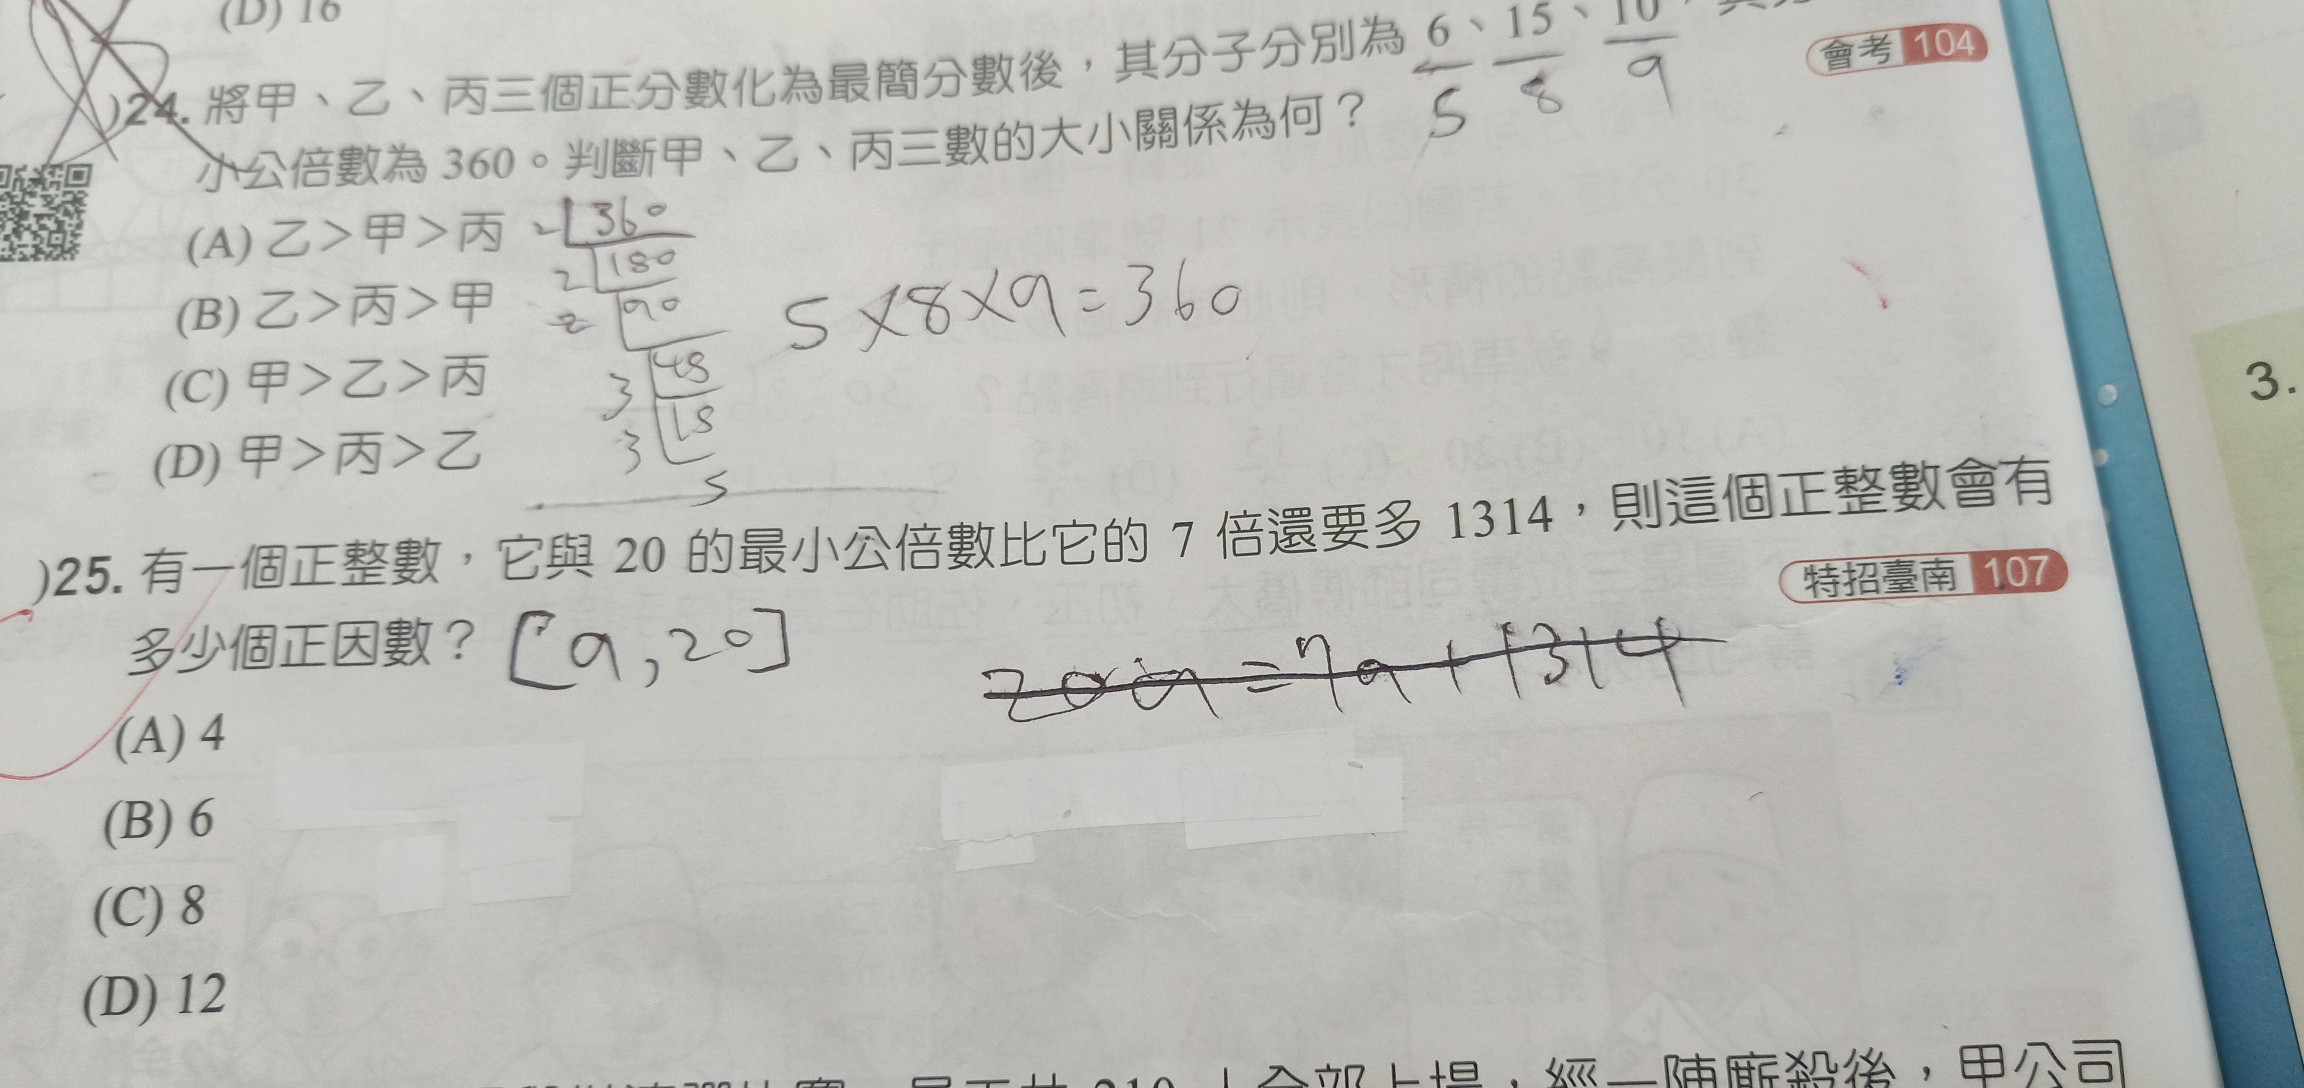 (D) 16
)24. 將甲、乙、丙三個正分數化為最簡分數後，其分子分別為 6、15、10，
5 8 9
會考 104
小公倍數為 360。判斷甲、乙、丙三數的大小關係為何？
(A) 乙＞甲＞丙
(B) 乙＞丙＞甲
(C) 甲＞乙＞丙
(D) 甲＞丙＞乙
2 360
2 180
2 90
3 45
3 15
5
5×8×9=360
)25. 有一個正整數，它與 20 的最小公倍數比它的 7 倍還要多 1314，則這個正整數會有
特招臺南 107
多少個正因數？
[a,20]
20a=7a+1314
(A) 4
(B) 6
(C) 8
(D) 12
3.
210 人全部上場，經一陣廝殺後，甲公司